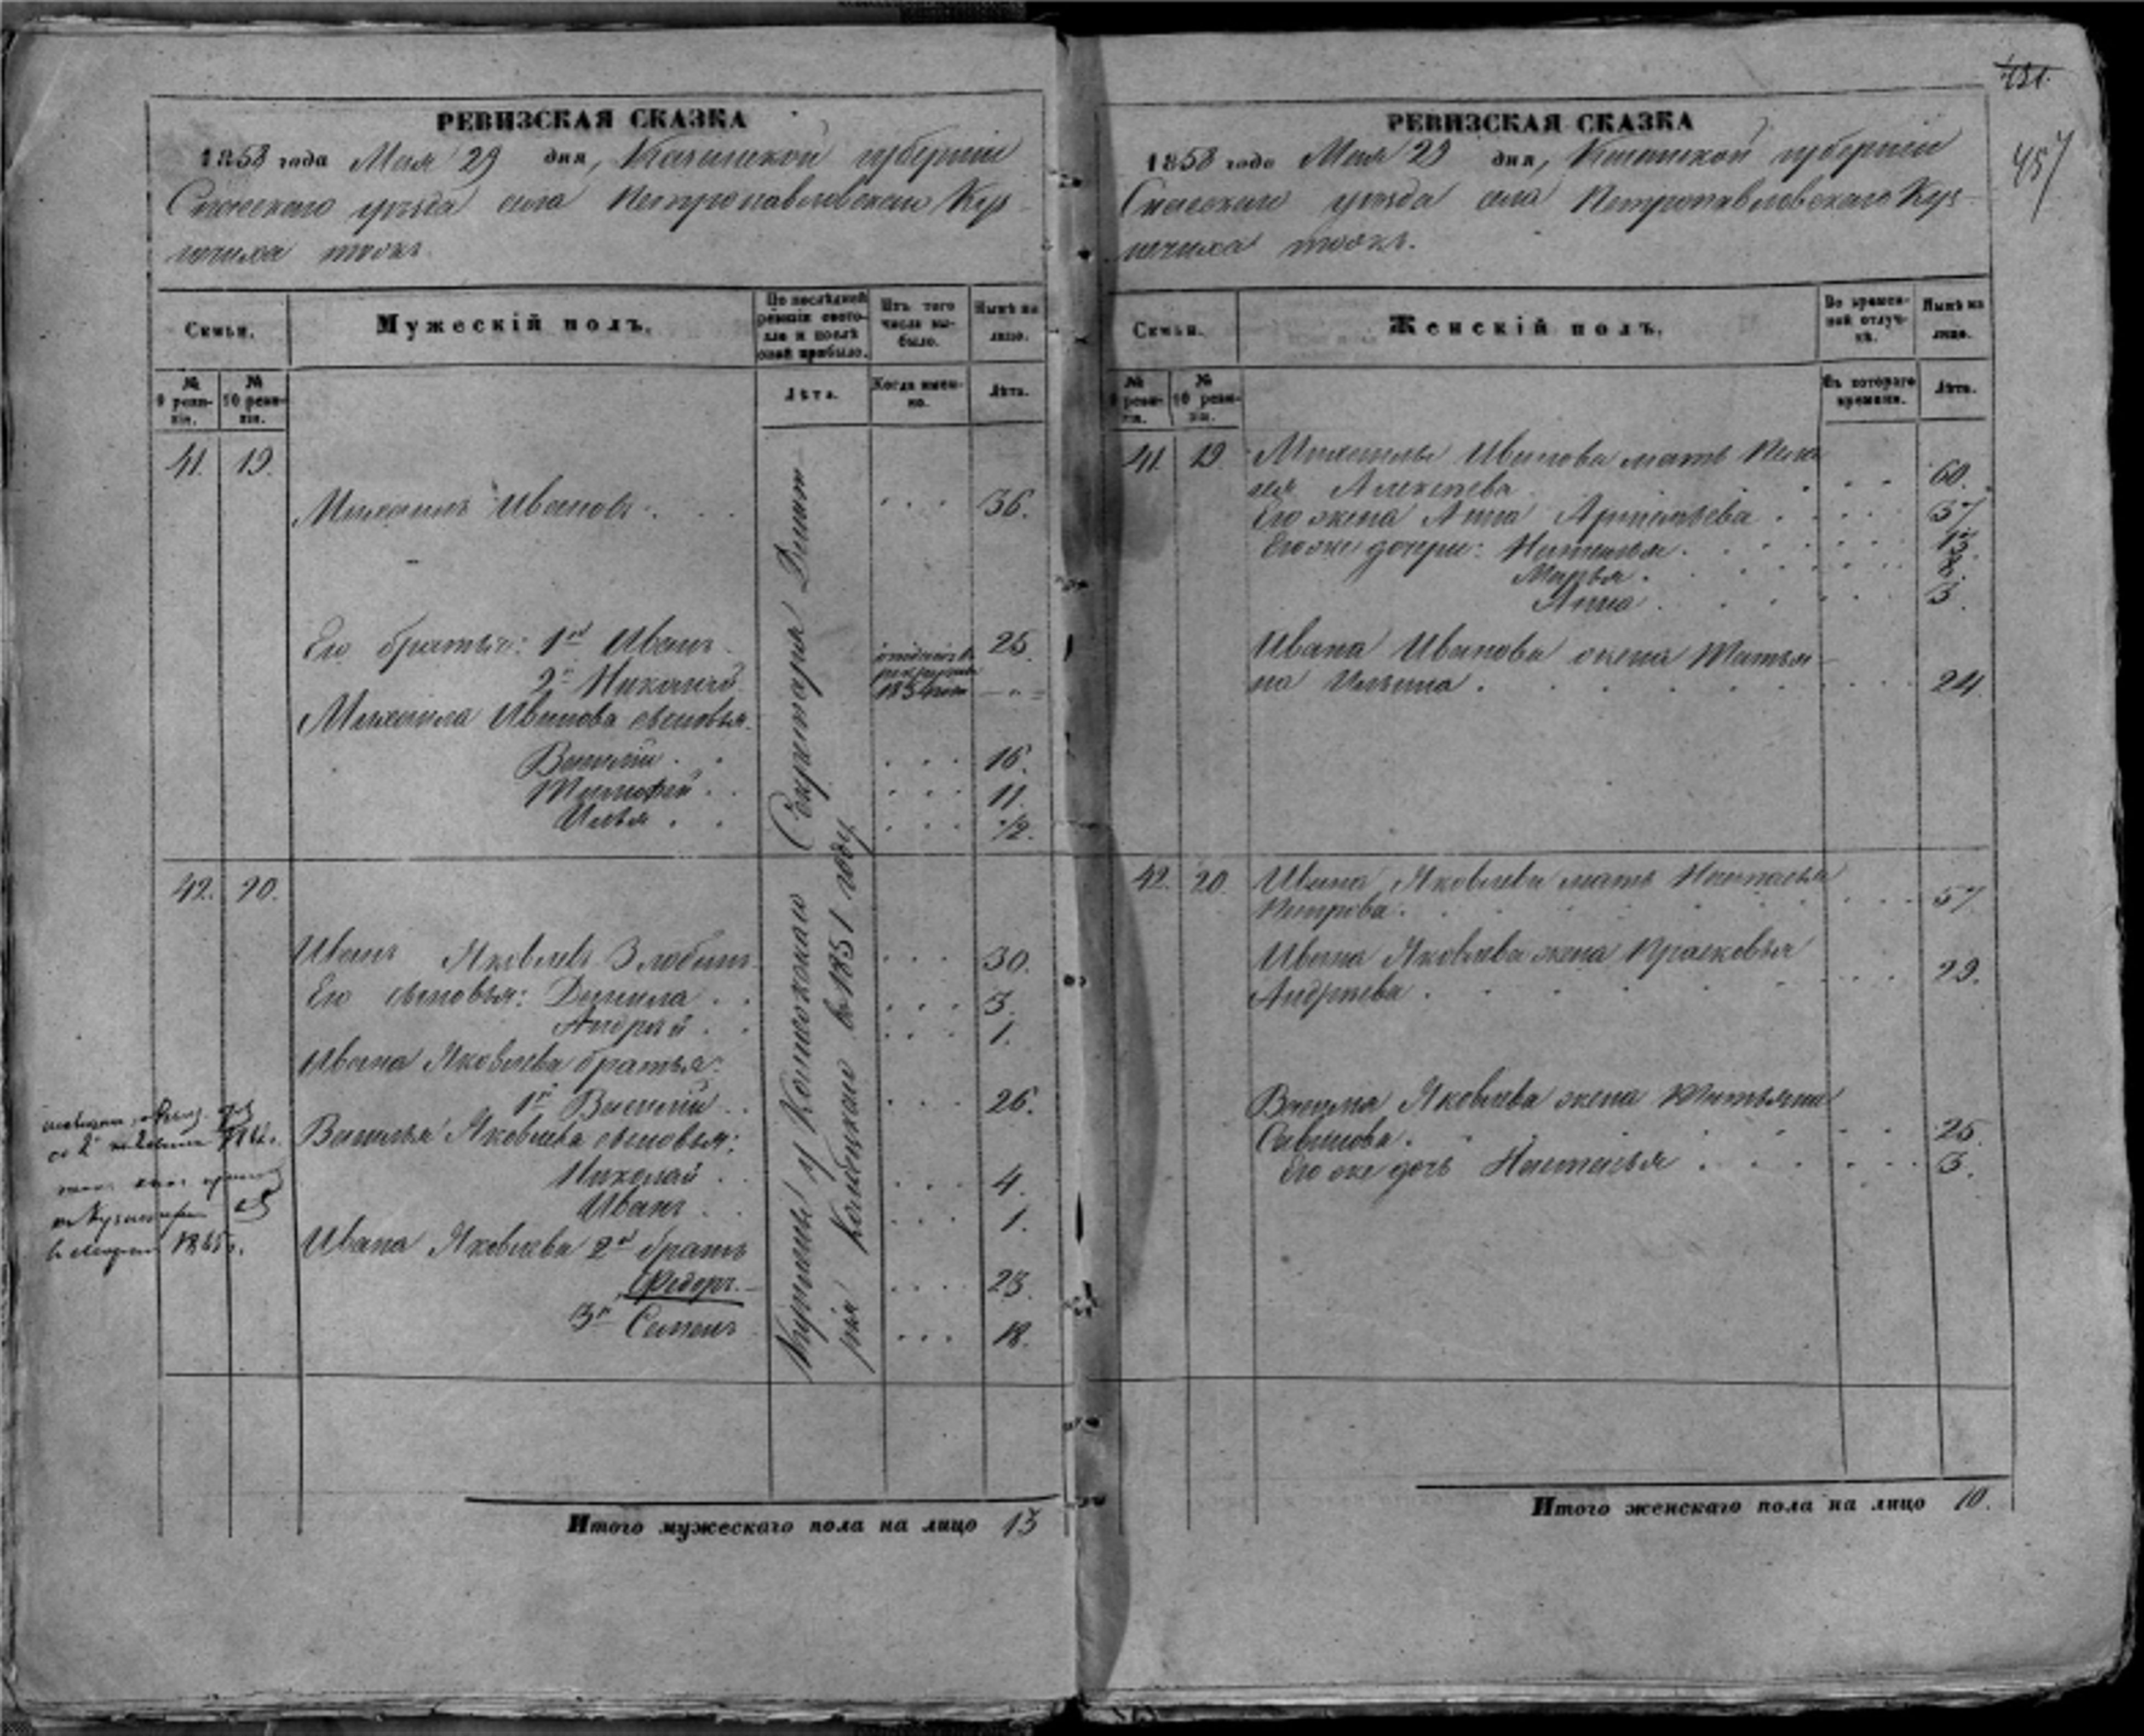 РЕВИЗСКАЯ СКАЗКА
1858 года Мая 29 дня, Казанской губернiи
Спасскаго уѣзда села Петропавловскаго Куз-
нечиха тожъ.
Семьи.
Мужескiй полъ.
По послѣдней ревизiи состояло и послѣ оной прибыло.
Изъ того числа выбыло.
Нынѣ на лицо.
№ 9 ревизiи.
№ 10 ревизiи.
Лѣта.
Когда именно.
Лѣта.
41. 19.
Михаилъ Ивановъ . . . 36.
Его братья: 1й Иванъ 25.
2й Николай 1854
Михаила Иванова сыновья
Василiй . . 16.
Тимофей . . 11.
Илья . . 1/2.
42. 20.
Иванъ Яковлевъ Злобинъ 30.
Его сыновья: Данила . . 3.
Андрей . . 1.
Ивана Яковлева братья:
1й Василiй . . 26.
Василья Яковлева сыновья:
Николай . . 4.
Иванъ . . 1.
Ивана Яковлева 2й братъ
Федоръ. 23.
3й Семенъ 18.
Куплены у Коллежскаго Секретаря
въ 1851 году
Итого мужескаго пола на лицо 13
431.
457
РЕВИЗСКАЯ СКАЗКА
1858 года Мая 29 дня, Казанской губернiи
Спасскаго уѣзда села Петропавловскаго Куз-
нечиха тожъ.
Семьи.
Женскiй полъ.
Во временной отлучкѣ.
Нынѣ на лицо.
№ 9 ревизiи.
№ 10 ревизiи.
Съ котораго времени.
Лѣта.
41. 19. Михаилы Иванова мать Пела
гея Алексѣева 60.
Его жена Анна Артемьева . 37
Его же дочери: Наталья. 13.
Марья. 8.
Анна . 3.
Ивана Иванова жена Татья-
на Ильина . 24.
42. 20. Ивана Яковлева мать Настасья
Петрова. 57.
Ивана Яковлева жена Прасковья
Андреева . 29.
Василья Яковлева жена Татьяна
Савинова. 25.
Его же дочь Наталья . 3.
Итого женскаго пола на лицо 10.